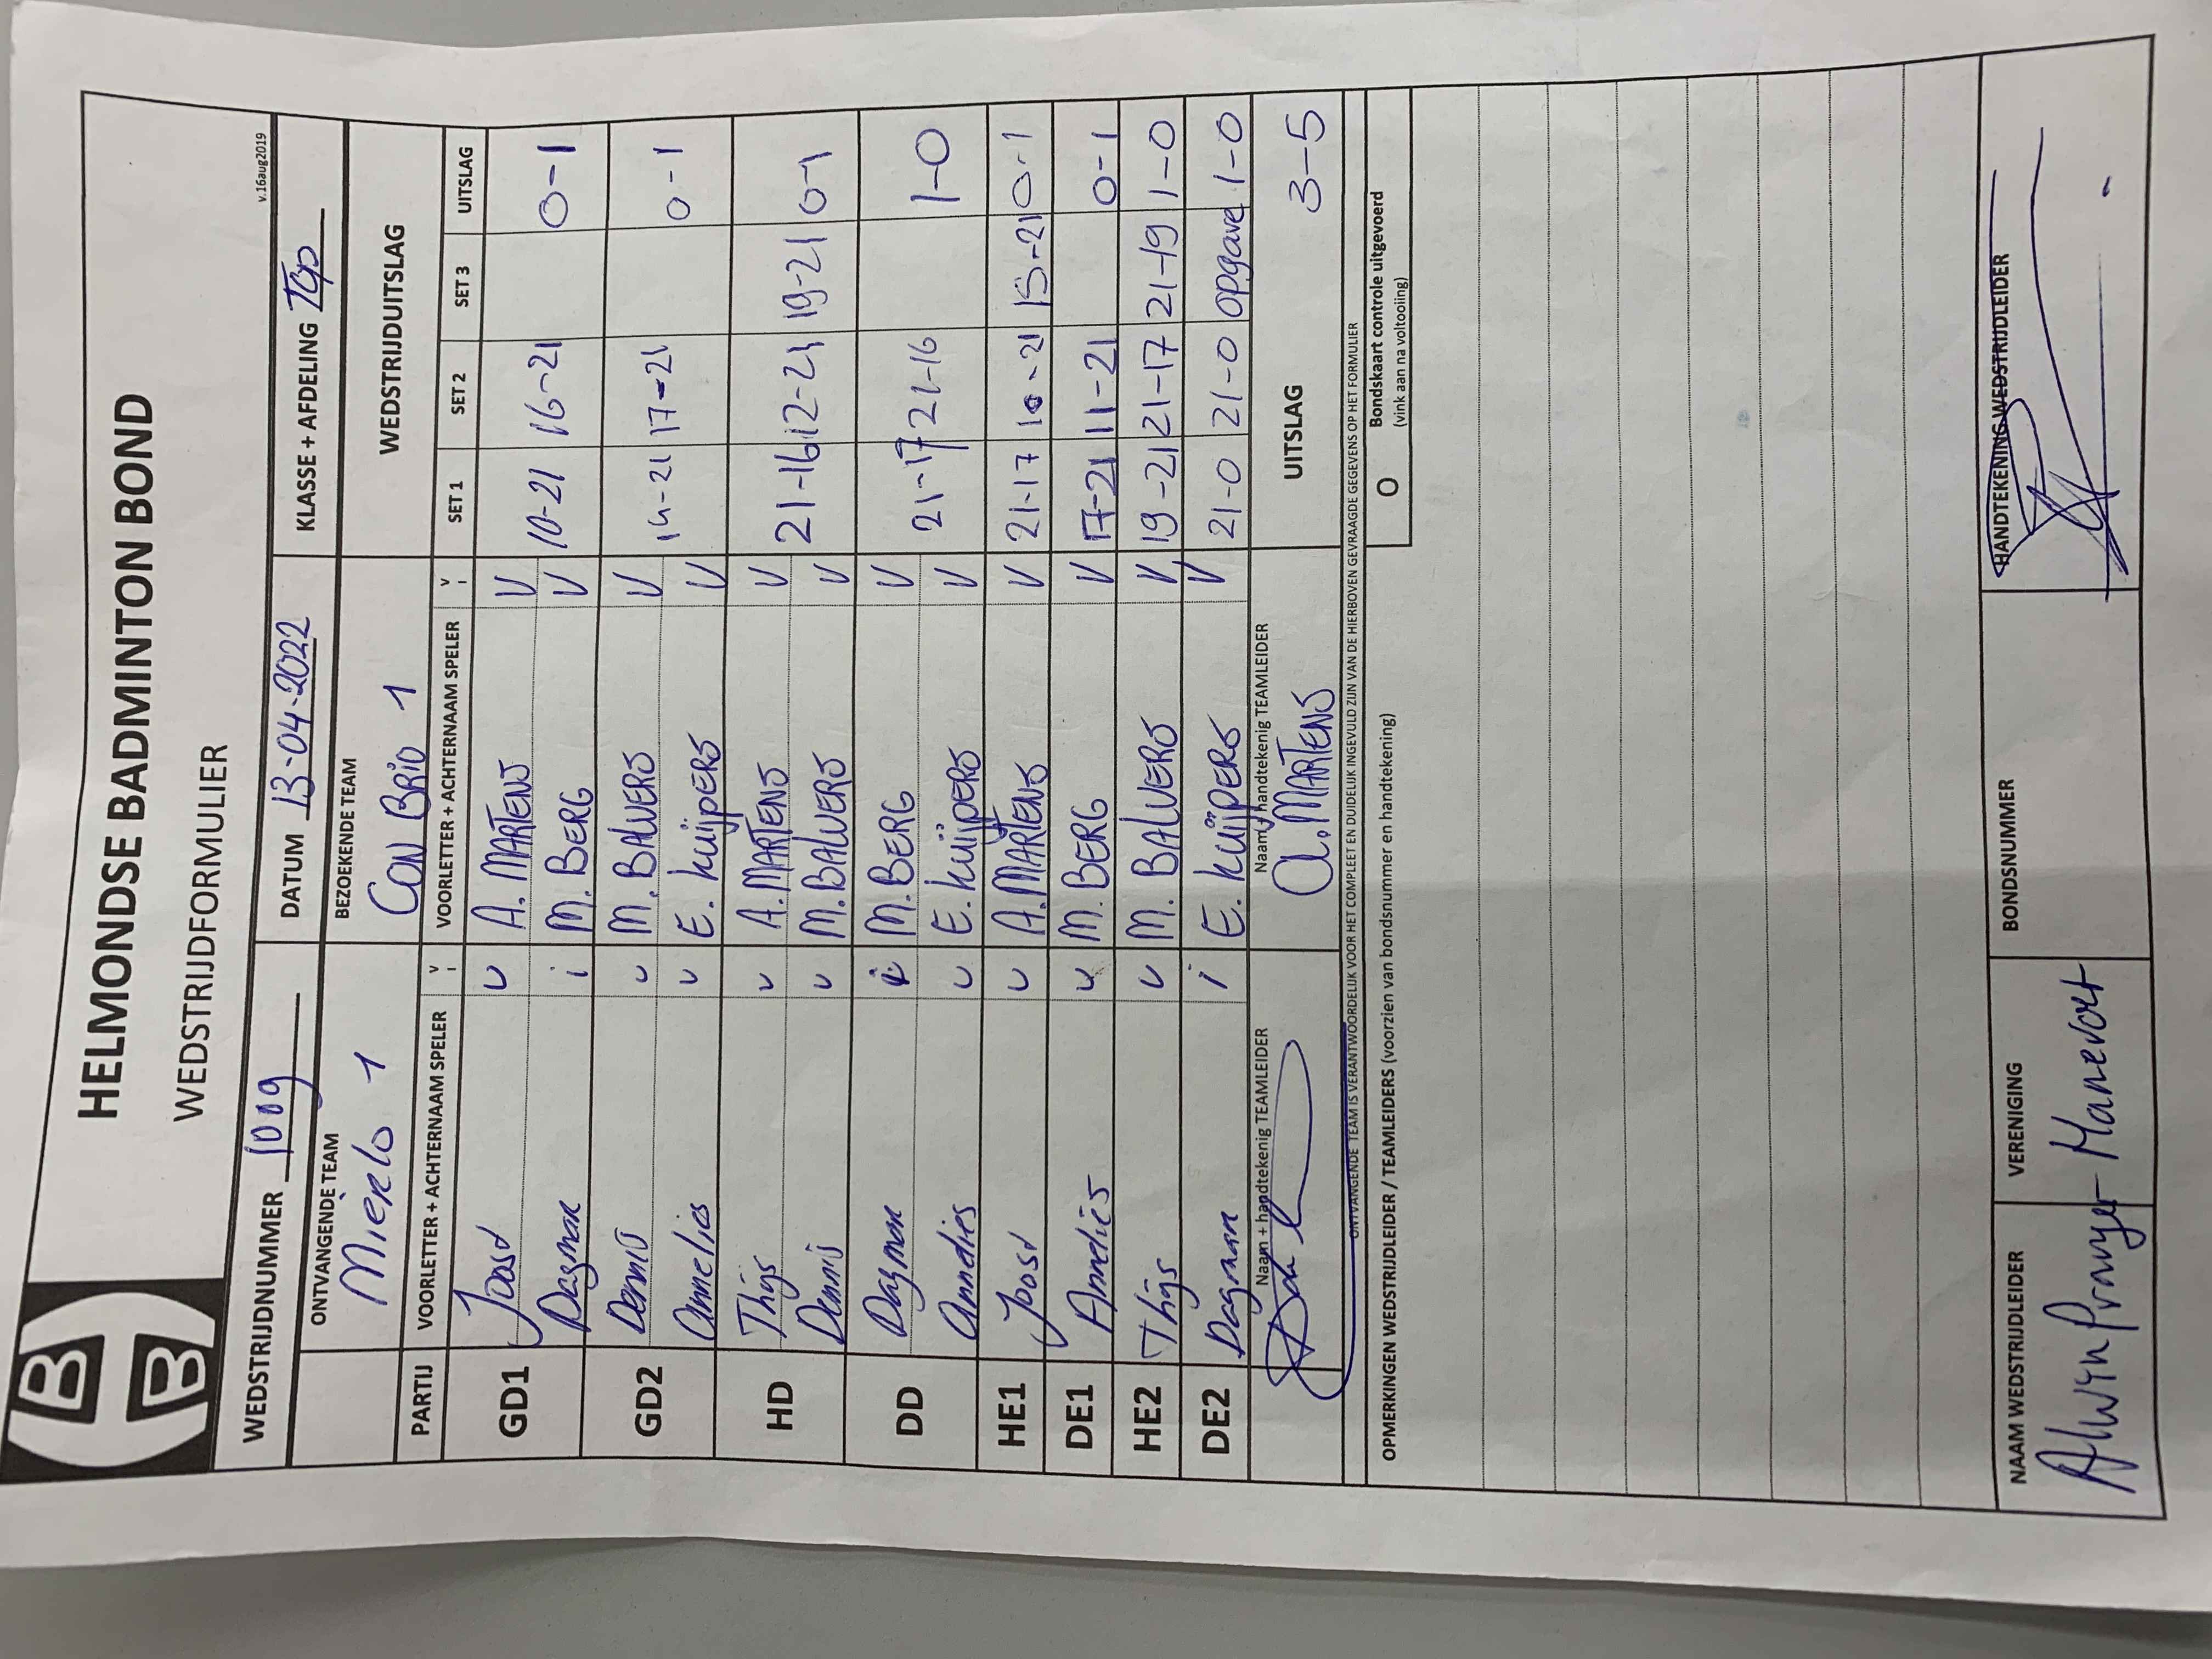 HELMONDSE BADMINTON BOND
WEDSTRIJDFORMULIER
v.16aug2019
WEDSTRIJDNUMMER 1009 DATUM 13-04-2022 KLASSE + AFDELING Top
ONTVANGENDE TEAM BEZOEKENDE TEAM WEDSTRIJDUITSLAG
Mierlo 1 Con Brio 1
PARTIJ VOORLETTER + ACHTERNAAM SPELER V i VOORLETTER + ACHTERNAAM SPELER V i SET 1 SET 2 SET 3 UITSLAG
GD1 Joost v A. MARTENS V
Dagmar i M. BERG V 10-21 16-21 0-1
GD2 Dennis v M. BALVERS V
Annelies v E. Kuijpers V 14-21 17-21 0-1
HD Thijs v A. MARTENS V
Dennis v M. BALVERS V 21-16 12-21 19-21 0-1
DD Dagmar i M. BERG V
Annelies v E. Kuijpers V 21-17 21-16 1-0
HE1 Joost v A. MARTENS V 21-17 10-21 15-21 0-1
DE1 Annelies v M. BERG V 17-21 11-21 0-1
HE2 Thijs v M. BALVERS V 19-21 21-17 21-19 1-0
DE2 Dagmar i E. Kuijpers V 21-0 21-0 opgave 1-0
Naam + handtekenig TEAMLEIDER Naam + handtekenig TEAMLEIDER UITSLAG 3-5
A. MARTENS
ONTVANGENDE TEAM IS VERANTWOORDELIJK VOOR HET COMPLEET EN DUIDELIJK INGEVULD ZIJN VAN DE HIERBOVEN GEVRAAGDE GEGEVENS OP HET FORMULIER
OPMERKINGEN WEDSTRIJDLEIDER / TEAMLEIDERS (voorzien van bondsnummer en handtekening) O Bondskaart controle uitgevoerd
(vink aan na voltooiing)
NAAM WEDSTRIJDLEIDER VERENIGING BONDSNUMMER HANDTEKENING WEDSTRIJDLEIDER
Alwin